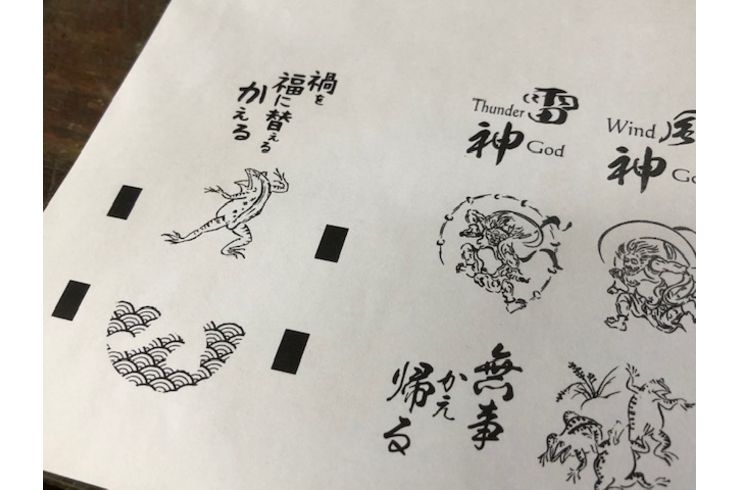 禍を
福に替える
かえる
Thunder 雷
神 God
Wind 風
神 Go
無事
かえ
帰る